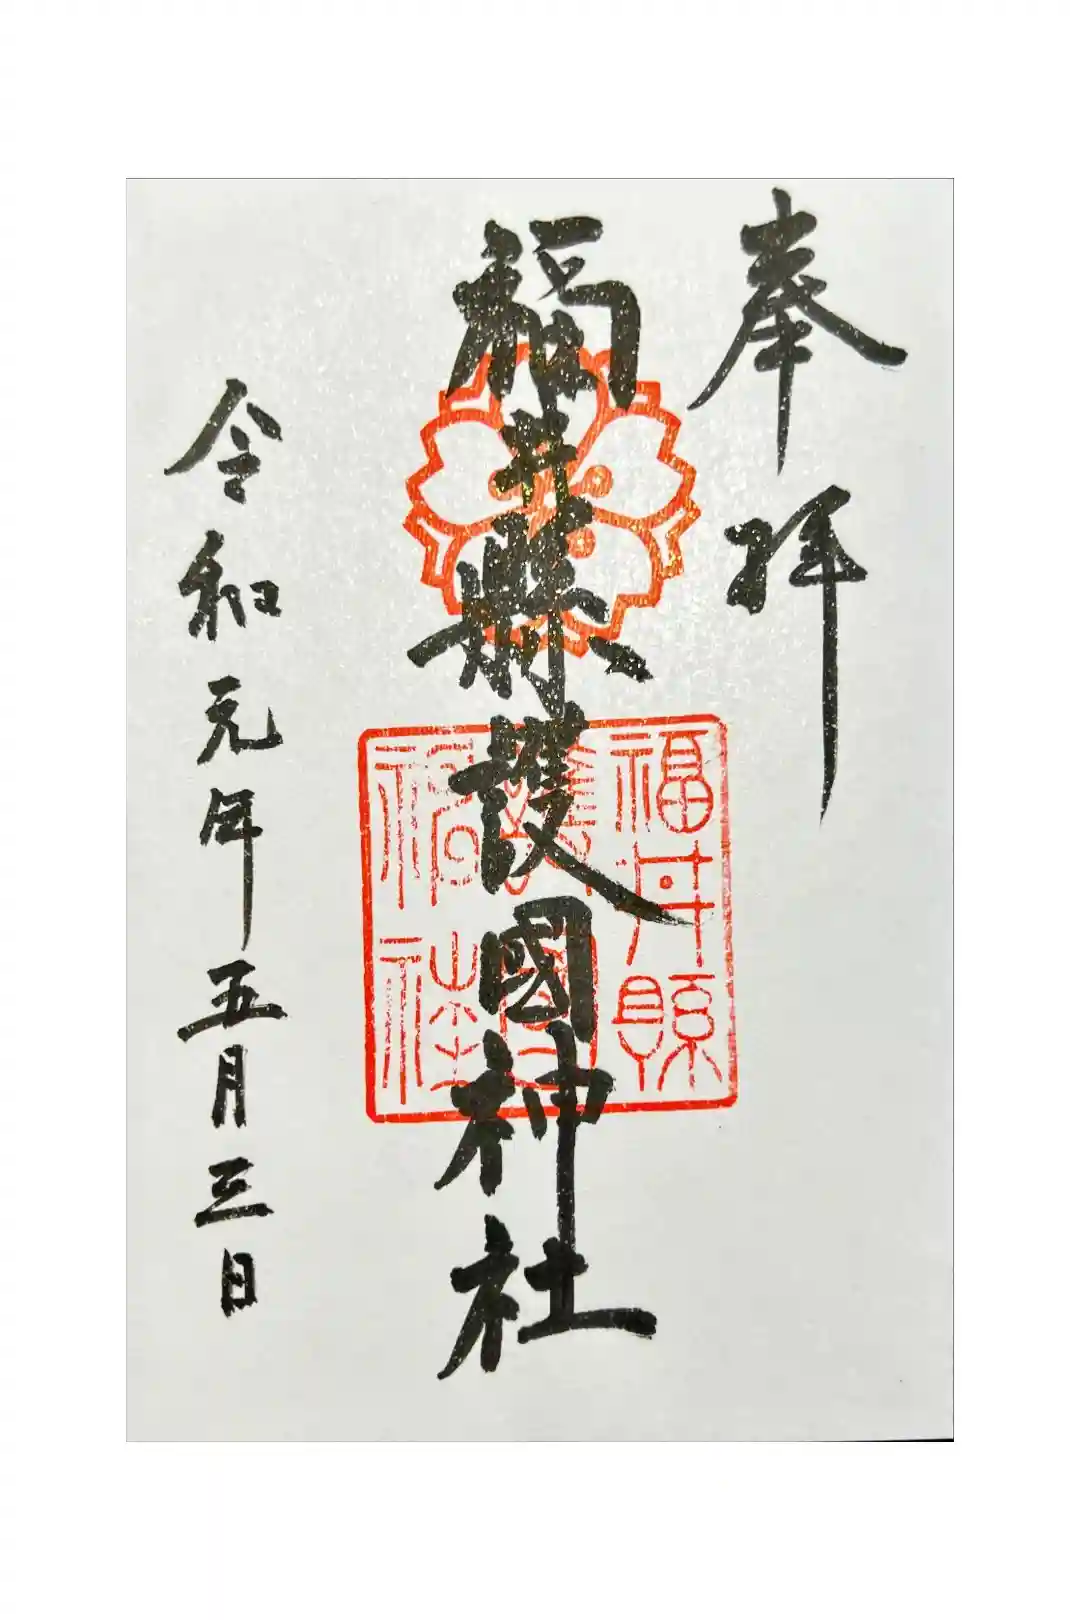 奉拝
福井縣護國神社
福井縣
護國
神社
令和元年五月三日